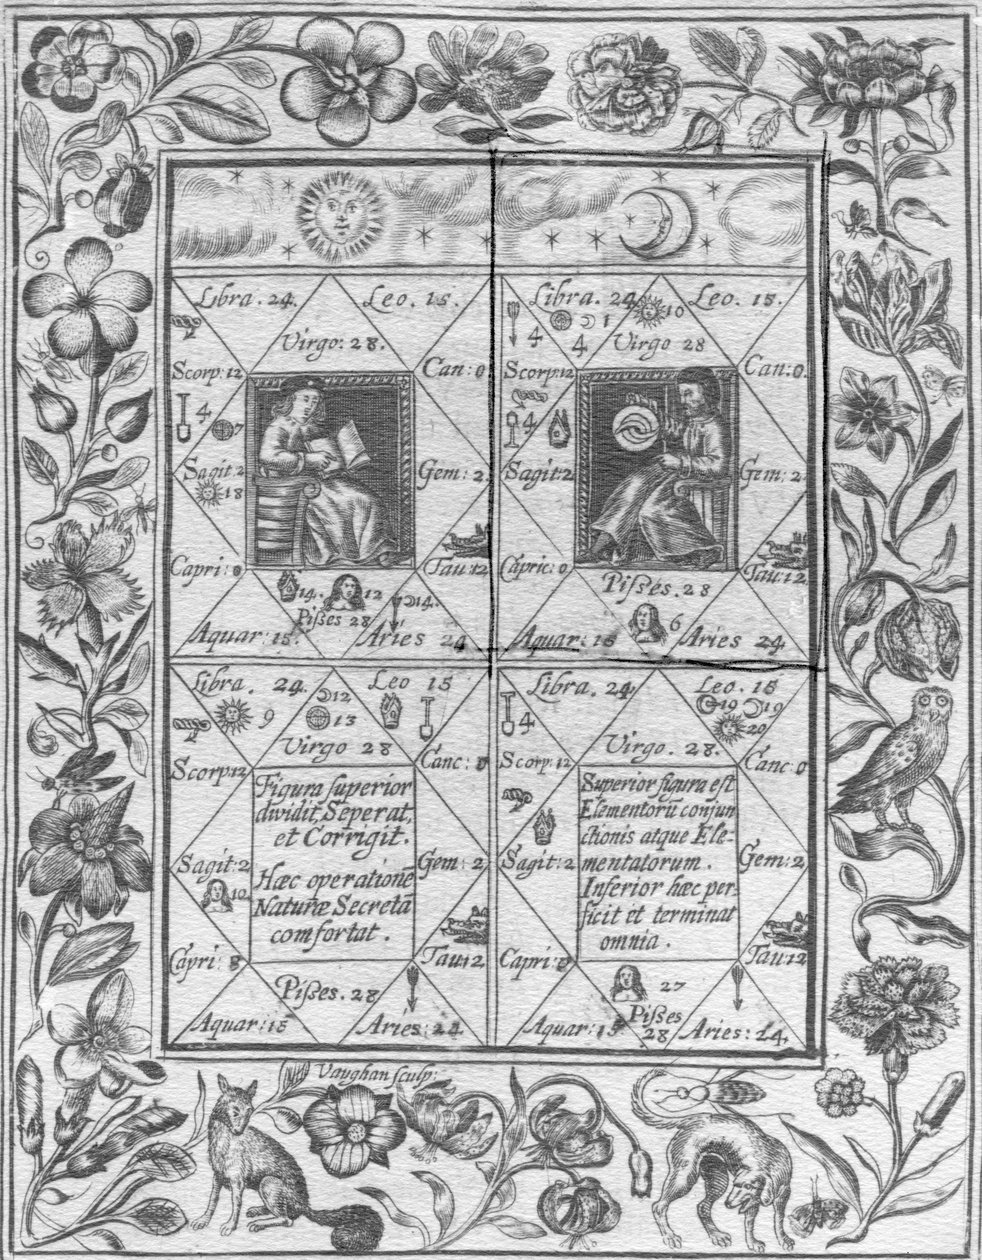 Libra. 24.
Leo. 15.
Virgo: 28.
Scorp: 12
Can: 0
4
7
Sagit: 2
18
Gem: 2
Capri: 0
Tau: 12
14.
12
14.
Pisses 28
Aquar: 15
Aries 24
Libra. 24
Leo. 15.
10
4
1
4
Virgo 28
Scorp: 12
Can: 0.
4
Sagit: 2
Gem: 2
Capric: 0
Tau: 12
Pisses. 28
6
Aquar: 15
Aries 24.
Libra. 24.
Leo 15
12
9
13
Virgo 28
Scorp: 12
Canc: 0
Figura superior
dividit, Seperat,
et Corrigit.
Hæc operationē
Naturæ Secretā
comfortat.
Sagit: 2
10
Gem: 2
Capri: 0
Tau: 12
Pisses. 28
Aquar: 15
Aries: 24
Libra. 24
Leo. 15
19
19
20
4
Virgo. 28.
Scorp: 12
Canc: 0
Superior figura est
Elementorū conjun
ctionis atque Ele-
mentatorum.
Inferior hæc per-
ficit et terminat
omnia.
Sagit: 2
Gem: 2
Capri: 0
Tau: 12
27
Pisses
28
Aquar: 15
Aries: 24.
Vaughan sculp: